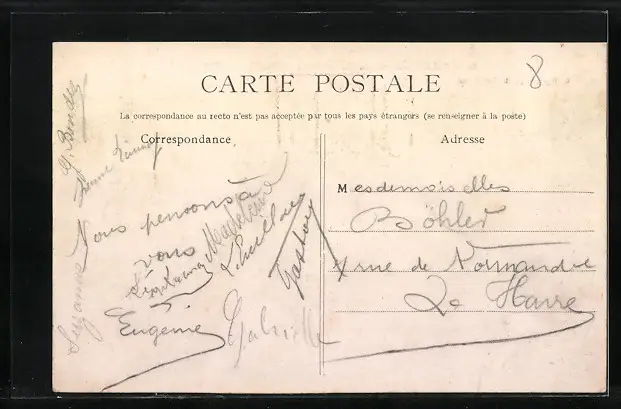 8
CARTE POSTALE
La correspondance au recto n'est pas acceptée par tous les pays étrangers (se renseigner à la poste)
Correspondance
Adresse
Nous pensons à
vous
Madeleine
Gaston
Suzanne
Eugenie
Gabrielle
Mesdemoiselles
Böhler
rue de Normandie
Le Havre